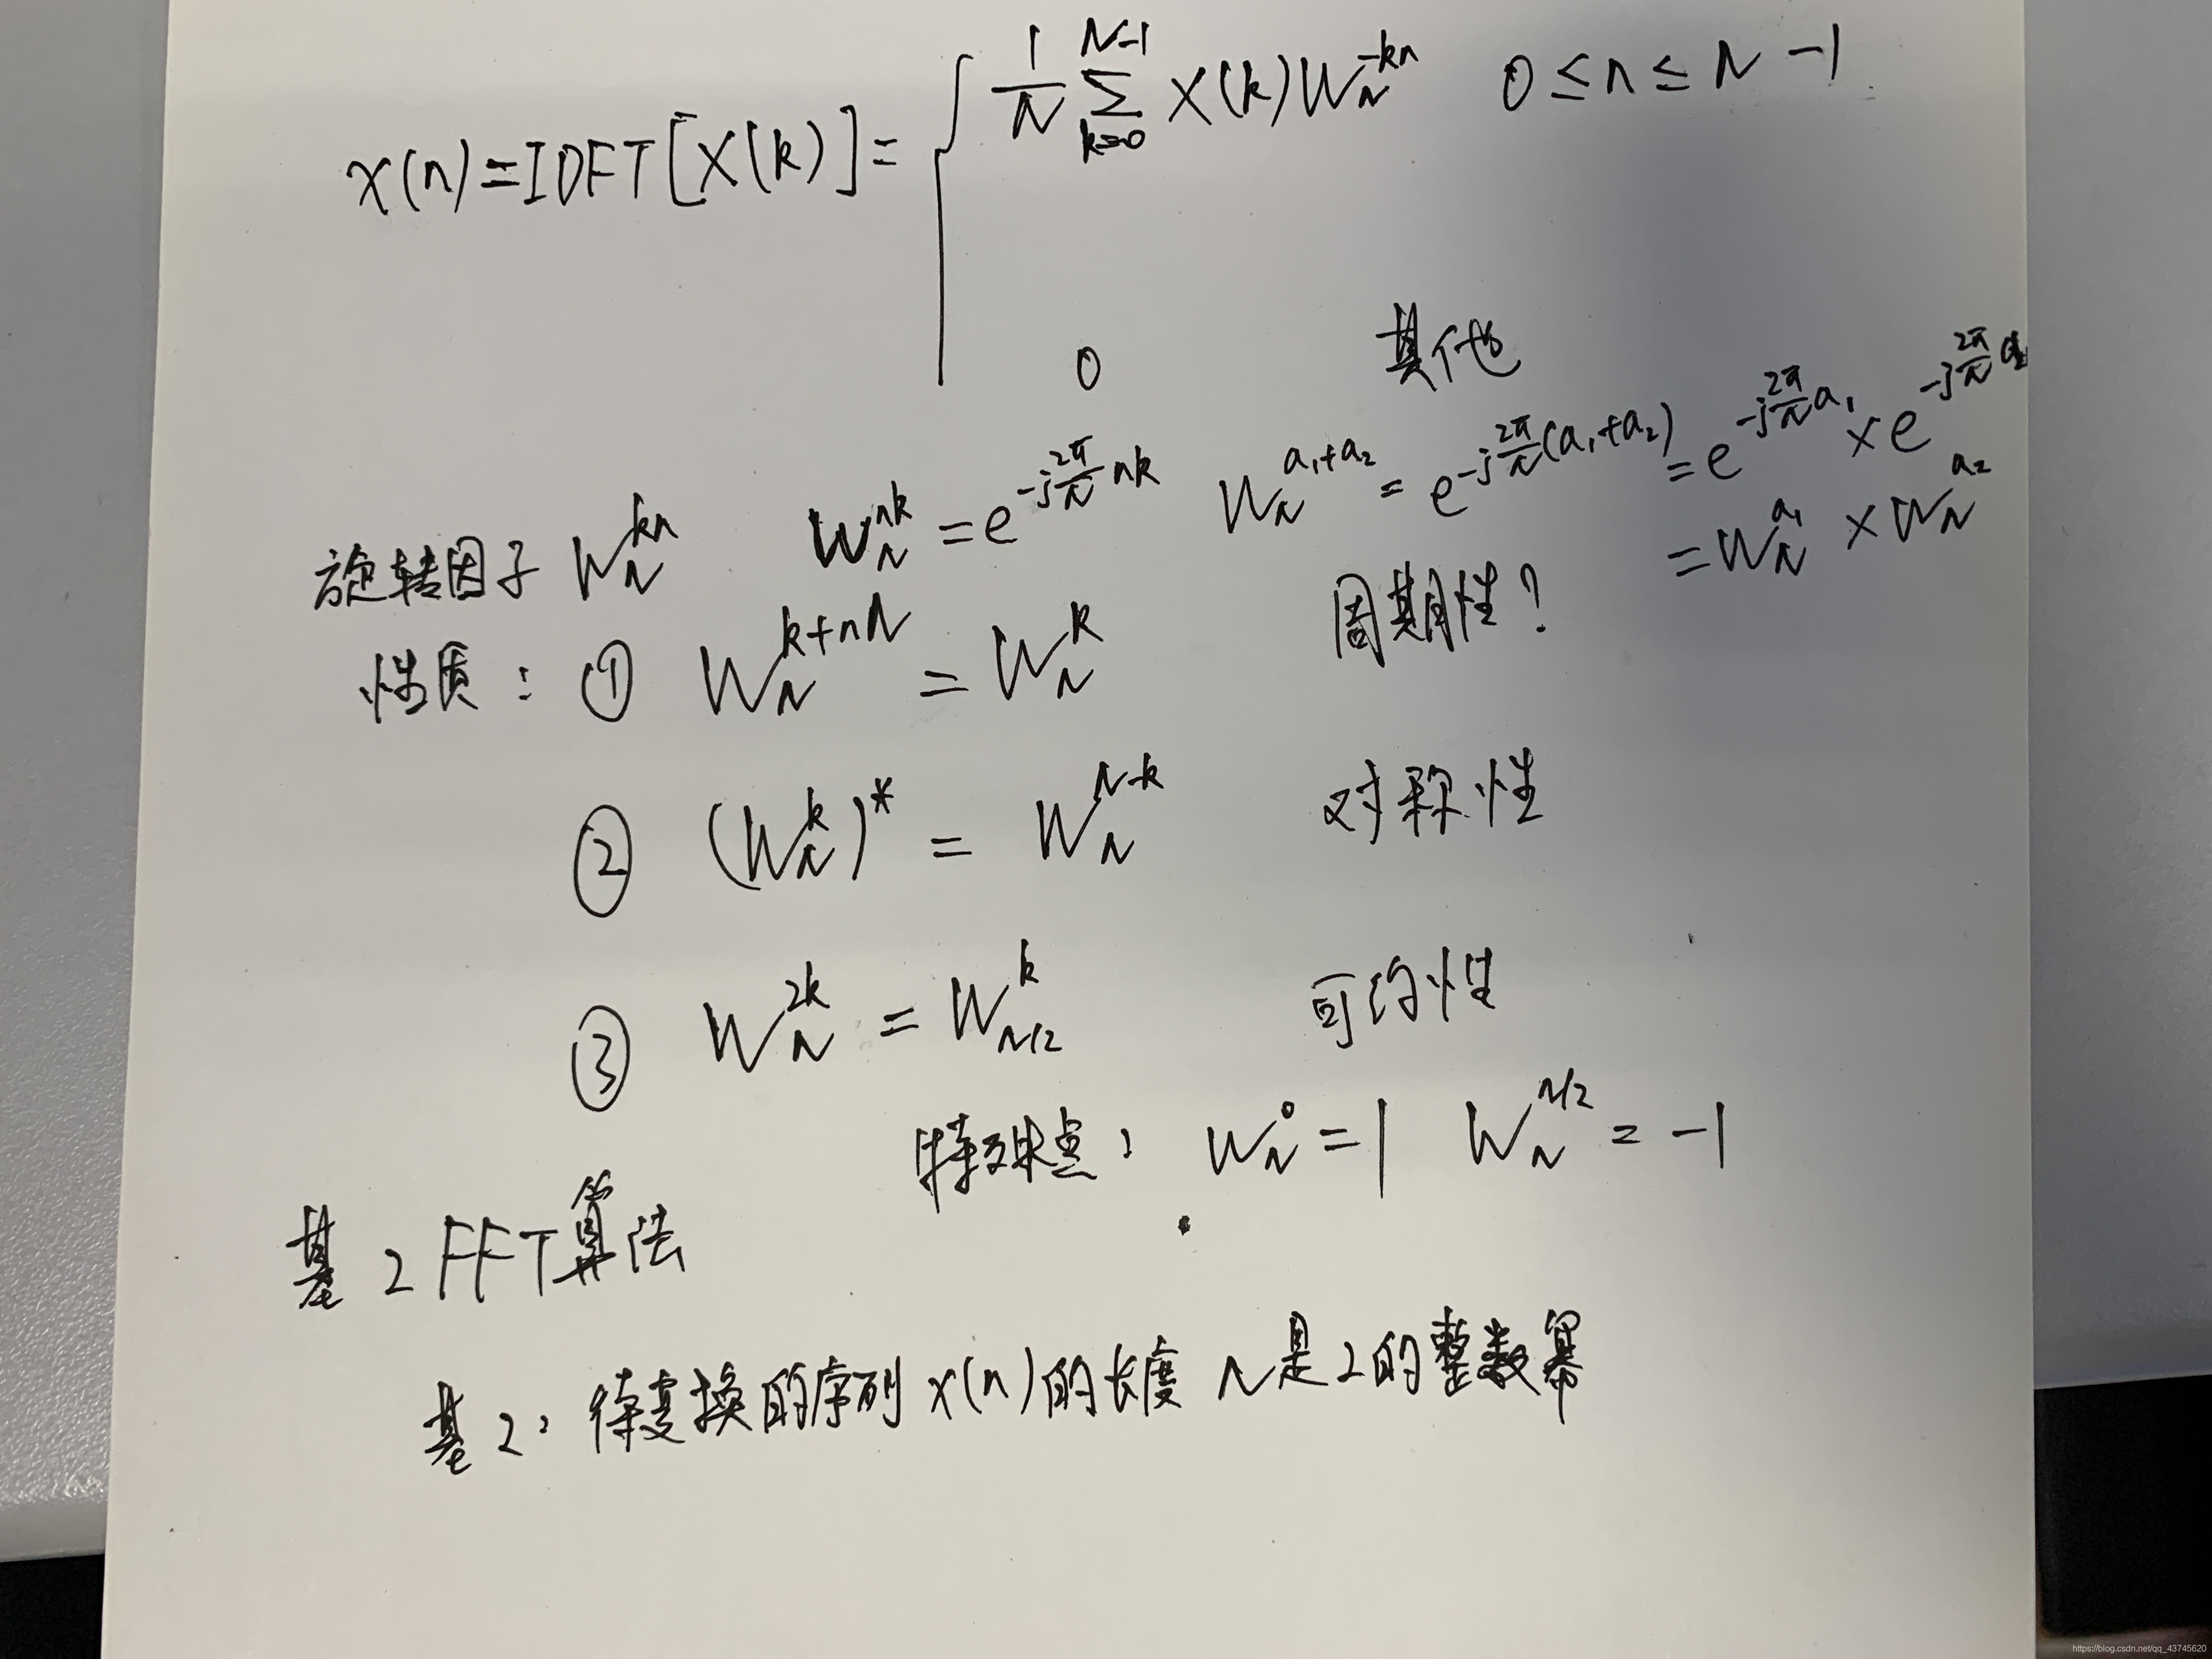 x(n)=IDFT[X(k)]= { \frac{1}{N} \sum_{k=0}^{N-1} X(k) W_N^{-kn}  0≤n≤N-1
0  其他
旋转因子 W_N^{kn}  W_N^{nk} = e^{-j\frac{2π}{N}nk}  W_N^{a_1+a_2} = e^{-j\frac{2π}{N}(a_1+a_2)} = e^{-j\frac{2π}{N}a_1} × e^{-j\frac{2π}{N}a_2}
= W_N^{a_1} × W_N^{a_2}
性质: ① W_N^{k+nN} = W_N^k  周期性?
② (W_N^k)^* = W_N^{N-k}  对称性
③ W_N^{2k} = W_{N/2}^k  可约性
特殊点: W_N^0 = 1  W_N^{N/2} = -1
基2FFT算法
基2: 待变换的序列x(n)的长度N是2的整数幂
https://blog.csdn.net/qq_43745620